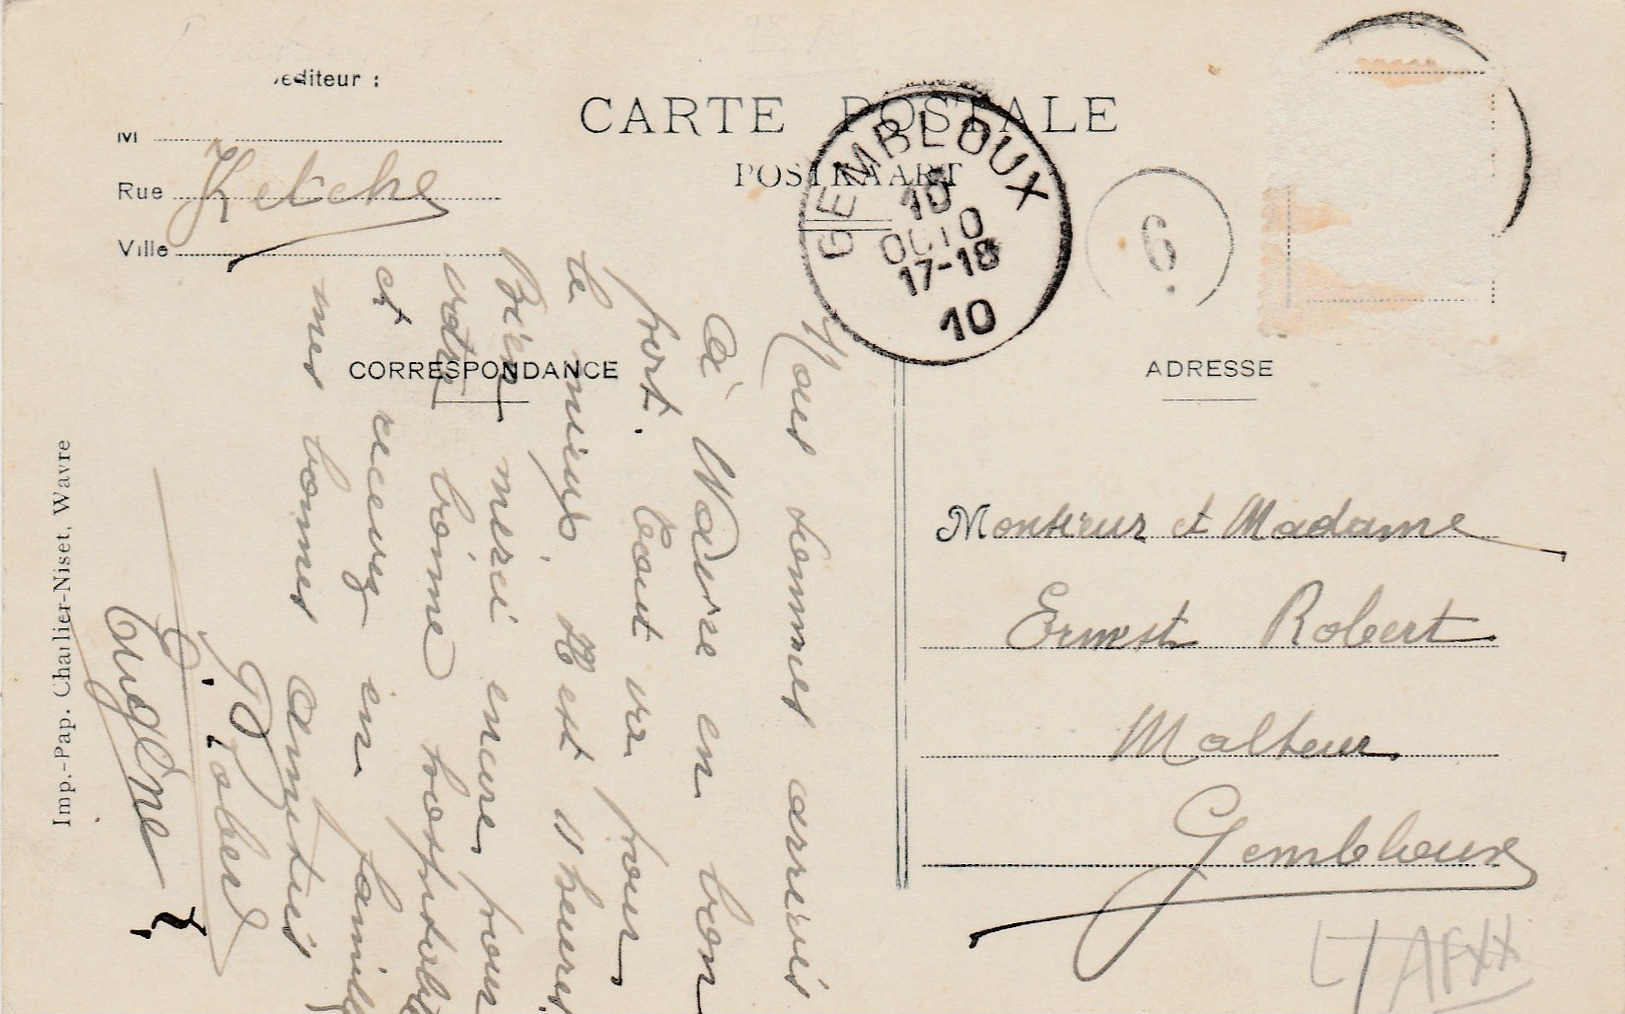 éditeur :
M
Rue
Ville
CARTE POSTALE
POSTKAART
GEMBLOUX
10
OCTO
17-18
10
6
CORRESPONDANCE
ADRESSE
Nous sommes arrivés
à Wavre en bon
port. Tout va pour
le mieux. Il est 11 heures
Bien merci encore pour
votre bonne hospitalité
et recevez en famille
mes bonnes amitiés
Robert
Eugène
Monsieur et Madame
Ernest Robert
Malheur
Gembloux
Imp.-Pap. Charlier-Niset, Wavre